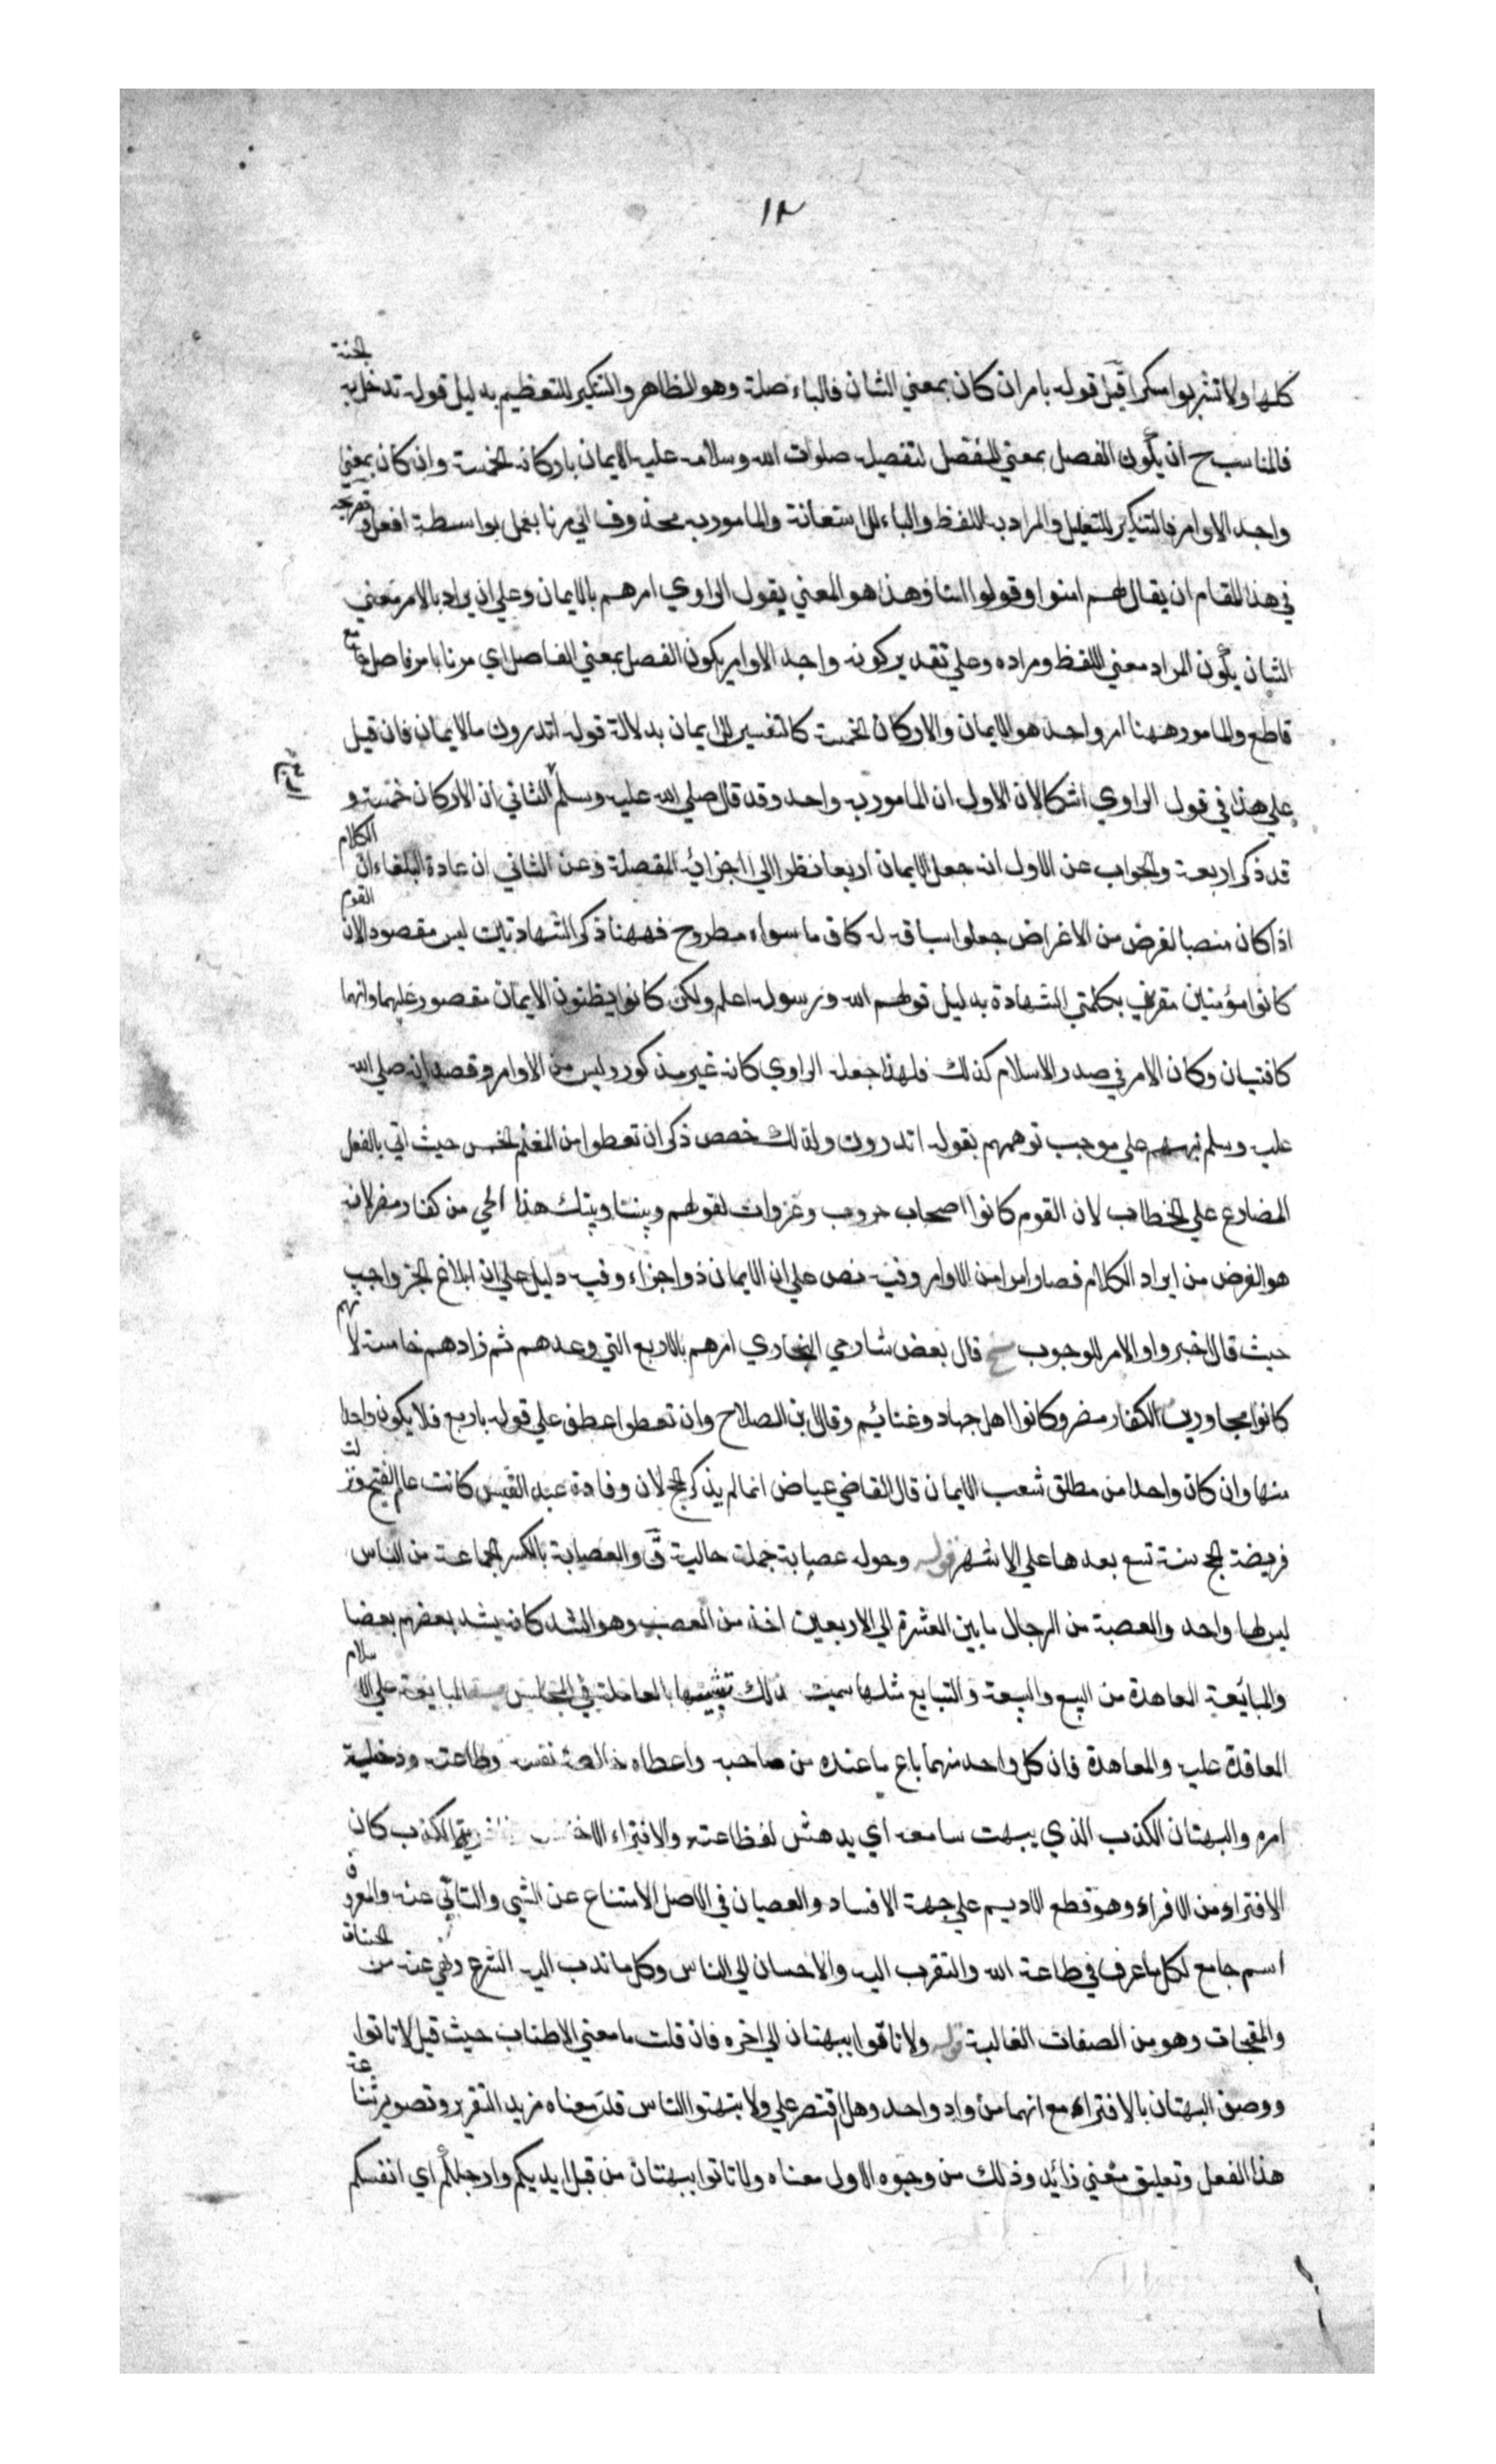 ١٢
كلها ولا تشربوا مسكرا قيل قوله بامر ان كان بمعني الشان فالباء صلة وهو الظاهر والتنكير للتعظيم بدليل قوله تدخل به الجنة
فالمناسب ح ان يكون الفصل بمعني المفصل لتفصيله صلوات الله وسلامه عليه الايمان باركانه الخمسة وان كان بمعني
واحد الاوامر فالتنكير للتقليل والمراد به اللفظ والباء للاستعانة والمامور به محذوف اي مرنا بعمل بواسطة افعل وتصريحه
في هذا المقام ان يقال لهم امنوا وقولوا امنا وهذا هو المعني بقول الراوي امرهم بالايمان وعلي ان يراد بالامر معني
الشان يكون المراد معني اللفظ ومراده وعلي تقدير كونه واحد الاوامر يكون الفصل بمعني الفاصل اي مرنا بامر فاصل جامع
قاطع والمامور ههنا امر واحد هو الايمان والاركان الخمسة كالتفسير للايمان بدلالة قوله اتدرون ما الايمان فان قيل
علي هذا في قول الراوي اشكالان الاول ان المامور به واحد وقد قال صلي الله عليه وسلم الثاني ان الاركان خمسة و
قد ذكر اربعة والجواب عن الاول انه جعل الايمان اربعا نظرا الي اجزائه المفصلة وعن الثاني ان عادة البلغاء ان الكلام
اذا كان منصبا لغرض من الاغراض جعلوا سياقه له كان ما سواه مطروح فههنا ذكر الشهادتين ليس مقصود لان القوم
كانوا مؤمنين مقرين بكلمتي الشهادة بدليل قولهم الله ورسوله اعلم ولكن كانوا يظنون الايمان مقصور عليهما وانهما
كافتيان وكان الامر في صدر الاسلام كذلك فلهذا جعله الراوي كانه غير مذكور وليس من الاوامر وقصد انه صلي الله
عليه وسلم نبههم علي موجب توهمهم بقوله اتدرون ولذلك خصص ذكر ان تعطوا من المغنم الخمس حيث اتي بالفعل
المضارع علي الخطاب لان القوم كانوا اصحاب حروب وغزوات لقولهم وبيننا وبينك هذا الحي من كفار مضر لانه
هو الغرض من ايراد الكلام فصار امرا من الاوامر وفيه نص علي ان الايمان ذو اجزاء وفيه دليل علي ان ابلاغ الخبر واجب
حيث قال اخبروا والامر للوجوب قال بعض شارحي البخاري امرهم بالاربع التي وعدهم ثم زادهم خامسة لانهم
كانوا مجاورين الكفار مضر وكانوا اهل جهاد وغنائم وقال ابن الصلاح وان تعطوا عطف علي قوله باربع فلا يكون واحدا
منها وان كان واحدا من مطلق شعب الايمان قال القاضي عياض انما لم يذكر الحج لان وفادة عبد القيس كانت عام الفتح ونزلت
فريضة الحج سنة تسع بعدها علي الاشهر قوله وحوله عصابة جملة حالية ق والعصابة بالكسر الجماعة من الناس
ليس لها واحد والعصبة من الرجال ما بين العشرة الي الاربعين اخذ من العصب وهو الشد كانه يشد بعضهم بعضا
والمبايعة المعاهدة من البيع والبيعة والتبايع مثلها سميت بذلك تشبيها بالمعاملة في المجالس المبايعة علي الاسلام
المعاقدة عليه والمعاهدة فان كل واحد منهما باع ما عنده من صاحبه واعطاه خالصة نفسه وطاعته ودخيلة
امره والبهتان الكذب الذي يبهت سامعه اي يدهش لفظاعته والافتراء الكذب كان
الافتراء من الافراء وهو قطع الاديم علي جهة الافساد والعصيان في الاصل الامتناع عن الشي والتاني عنه والمعروف
اسم جامع لكل ما عرف في طاعة الله والتقرب اليه والاحسان الي الناس وكل ما ندب اليه الشرع ونهي عنه من الحسنات
والمقبحات وهو من الصفات الغالبة قوله ولا تاتوا ببهتان الي اخره فان قلت ما معني الاطناب حيث قيل لا تاتوا
ووصف البهتان بالافتراء مع انهما من واد واحد وهل اقتصر علي ولا تبهتوا الناس قلت معناه مزيد التقرير وتصوير شناعة
هذا الفعل وتعليق معني زائد وذلك من وجوه الاول معناه ولا تاتوا ببهتان من قبل ايديكم وارجلكم اي انفسكم